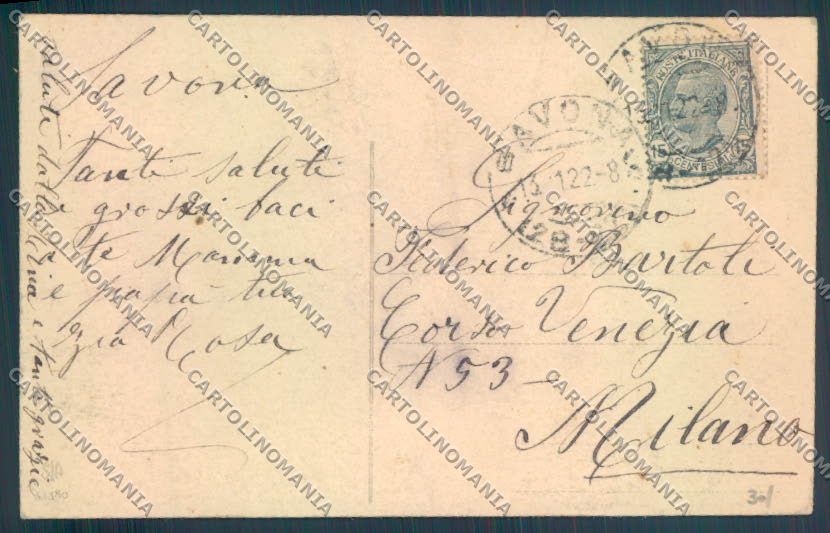 Savona
Tanti saluti
e grossi baci
a te Mamma
e papà tua
zia Rosa
saluti dalla Gina e tanti grazie
POSTE ITALIANE
15 CENTESIMI 15
SAVONA
1.22-8
Signorino
Federico Bartoli
Corso Venezia
N 53
Milano
30/
CARTOLINOMANIA